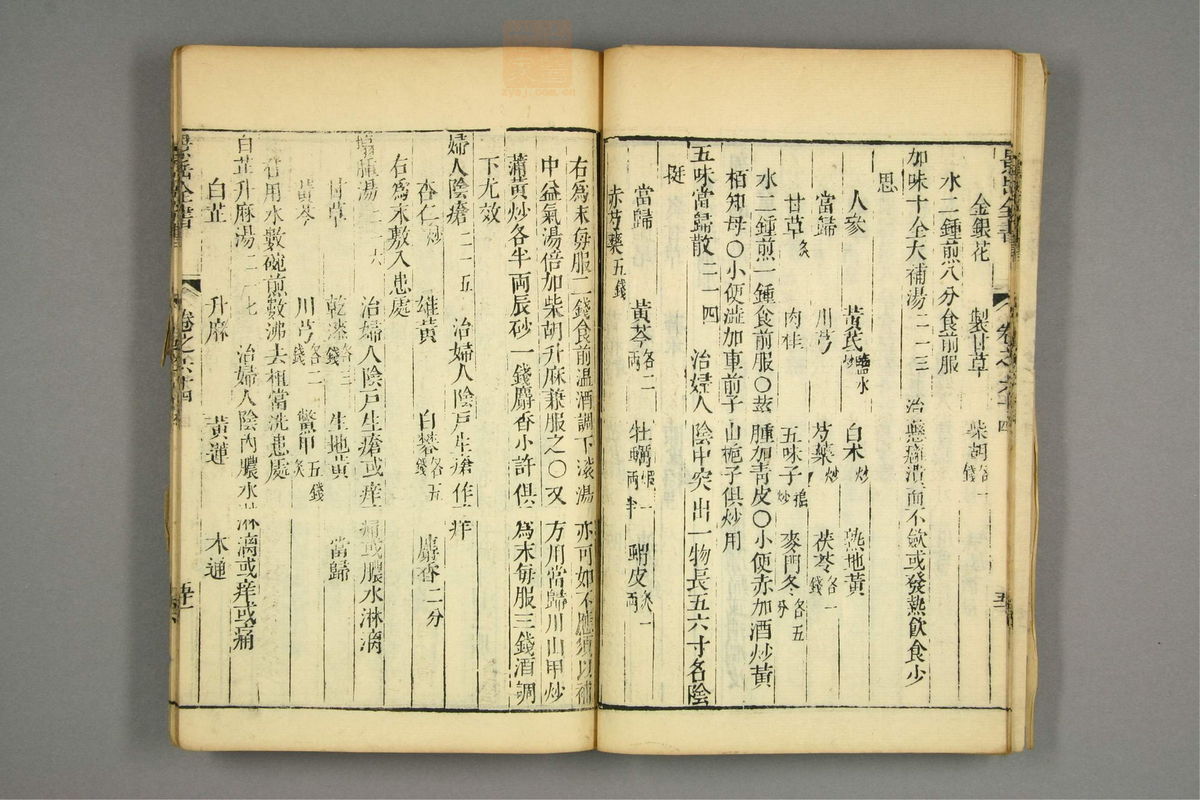 金銀花 製甘草 柴胡各一錢
水二鍾煎八分食前服
加味十全大補湯二一三 治懸癰潰而不斂或發熱飲食少
思
人參 黃芪鹽水炒 白朮炒 熟地黃
當歸 川芎 芍藥炒 茯苓各一錢
甘草炙 肉桂 五味子搗炒 麥門冬各五分
水二鍾煎一鍾食前服○莖腫加青皮○小便赤加酒炒黃
栢知母○小便澁加車前子山梔子俱炒用
五味當歸散二一四 治婦人陰中突出一物長五六寸名陰
挺
當歸 黃芩各二兩 牡蠣煆一兩半 蝟皮炙一兩
赤芍藥五錢
右為末每服二錢食前溫酒調下滚湯亦可如不應須以補
中益氣湯倍加柴胡升麻兼服之○又方用當歸川山甲炒
蒲黃炒各半兩辰砂一錢麝香小許俱為末每服三錢酒調
下尤效
婦人陰瘡二一五 治婦人陰戶生瘡作痒
杏仁炒 雄黃 白礬各五錢 麝香二分
右為末敷入患處
塌腫湯二一六 治婦人陰戶生瘡或痒或痛或膿水淋漓
甘草 乾漆各三錢 生地黃 當歸
黃芩 川芎各二錢 鱉甲五錢炙
右用水數碗煎數沸去柤當洗患處
白芷升麻湯二一七 治婦人陰內膿水淋漓或痒或痛
白芷 升麻 黃連 木通
景岳全書 卷之六十四